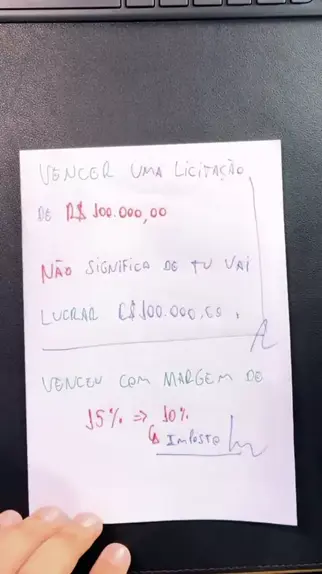 VENCER UMA LICITAÇÃO
DE R$ 100.000,00
NÃO SIGNIFICA DE TU VAI
LUCRAR R$100.000,00.
VENCEU COM MARGEM DE
15% ⇒ 10%
↳ IMPOSTO